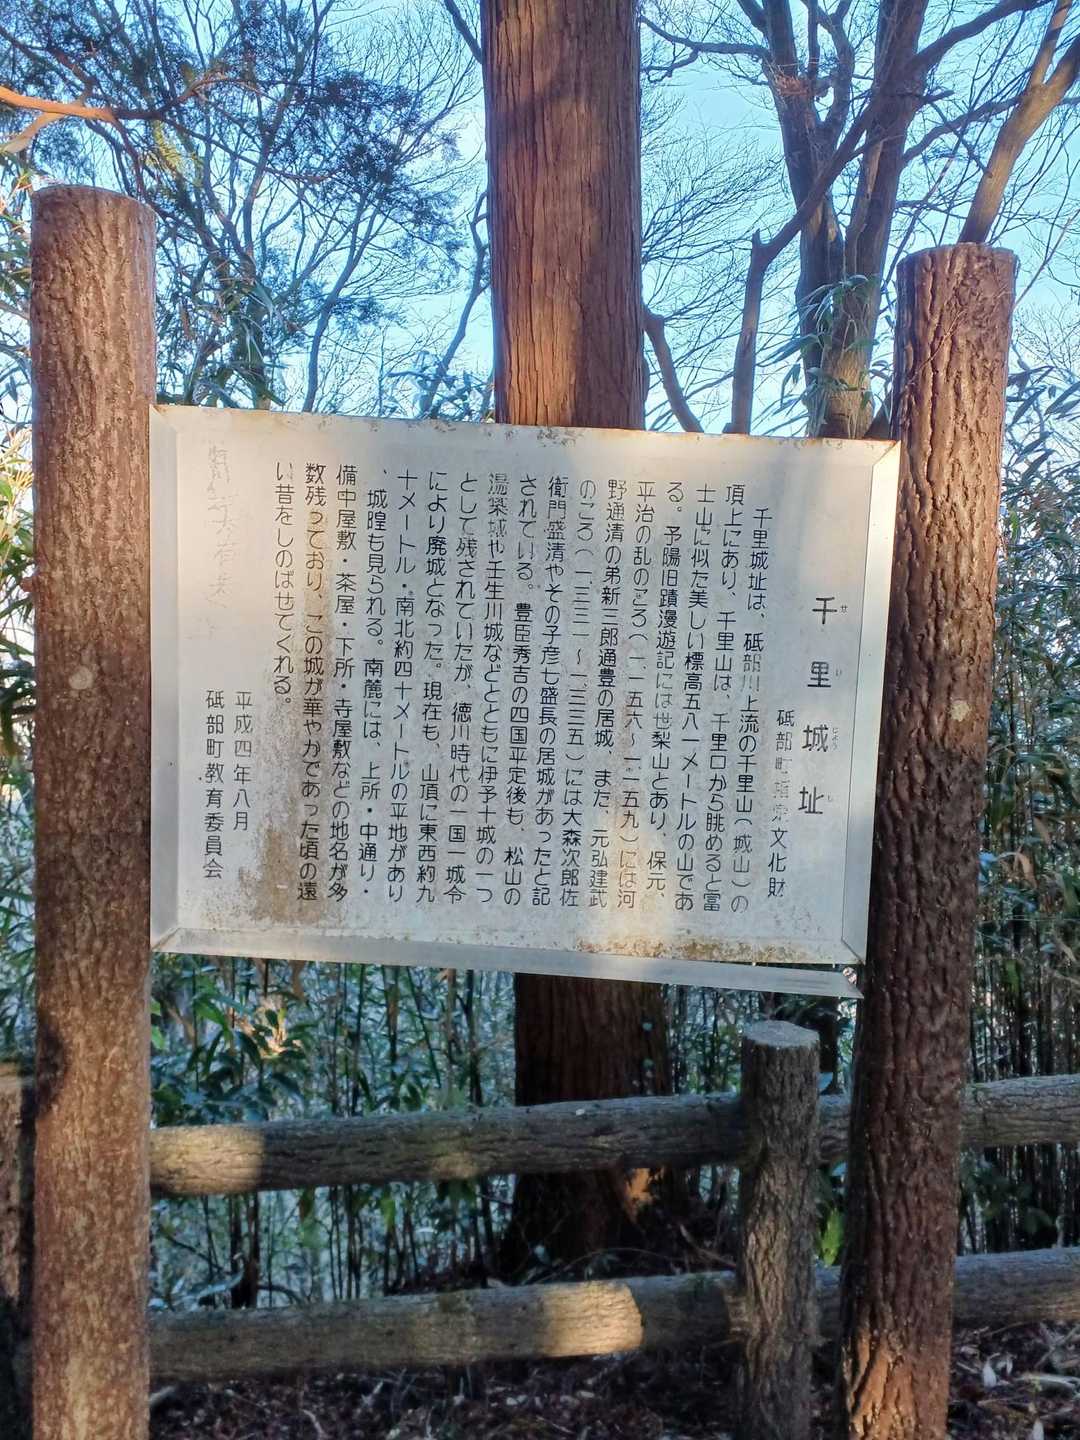 千里城址
せりじょうし
砥部町指定文化財
千里城址は、砥部川上流の千里山(城山)の
頂上にあり、千里山は、千里口から眺めると富
士山に似た美しい標高五八一メートルの山であ
る。予陽旧蹟漫遊記には世梨山とあり、保元、
平治の乱のころ(一一五六~一一五九)には河
野通清の弟新三郎通豊の居城、また、元弘建武
のころ(一三三一~一三三五)には大森次郎佐
衛門盛清やその子彦七盛長の居城があったと記
されている。豊臣秀吉の四国平定後も、松山の
湯築城や壬生川城などとともに伊予十城の一つ
として残されていたが、徳川時代の一国一城令
により廃城となった。現在も、山頂に東西約九
十メートル・南北約四十メートルの平地があり
、城隍も見られる。南麓には、上所・中通り・
備中屋敷・茶屋・下所・寺屋敷などの地名が多
数残っており、この城が華やかであった頃の遠
い昔をしのばせてくれる。
平成四年八月
砥部町教育委員会